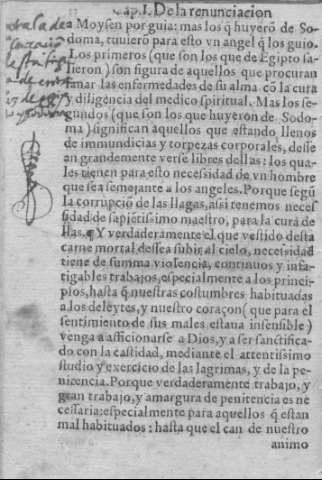 Cap. I. De la renunciacion
Moysen por guia: mas los q̃ huyerõ de So-
doma, tuuierõ para esto vn angel q̃ los guio.
Los primeros (que son los que de Egipto sa-
lieron) son figura de aquellos que procuran
sanar las enfermedades de su alma cõ la cura
y diligencia del medico spiritual. Mas los se-
gundos (que son los que huyeron de Sodo-
ma) significan aquellos que estando llenos
de immundicias y torpezas corporales, desse
an grandemente verse libres dellas: los qua-
les tienen para esto necessidad de vn hombre
que sea semejante a los angeles. Porque segũ
la corrupciõ de las llagas, assi tenemos neces
sidad de sapiẽtissimo maestro, para la cura de
llas. ¶ Y verdaderamente el que vestido desta
carne mortal dessea subir al cielo, necessidad
tiene de summa violencia, continuos y infa-
tigables trabajos, especialmente a los princi-
pios, hasta q̃ nuestras costumbres habituadas
a los deleytes, y nuestro coraçon (que para el
sentimiento de sus males estaua insensible)
venga a afficionarse a Dios, y a ser sanctifica-
do con la castidad, mediante el attentissimo
studio y exercicio de las lagrimas, y de la pe-
nitencia. Porque verdaderamente trabajo, y
gran trabajo, y amargura de penitencia es ne
cessaria: especialmente para aquellos q̃ estan
mal habituados: hasta que el can de nuestro
animo